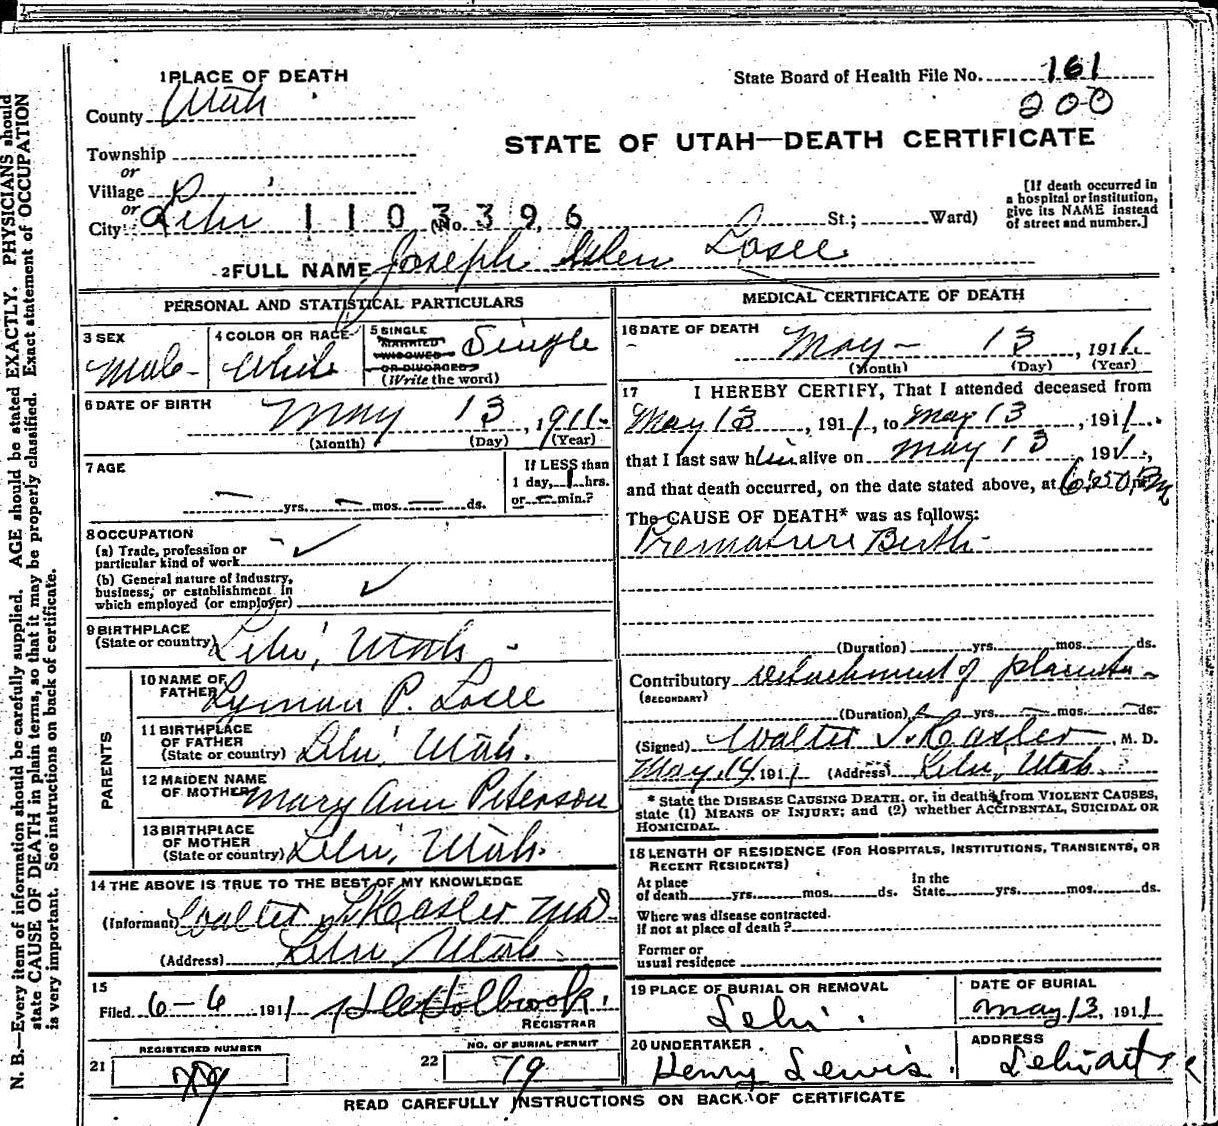 1 PLACE OF DEATH
State Board of Health File No. 161
200
County Utah
STATE OF UTAH—DEATH CERTIFICATE
Township
or
Village
or
City Lehi 1103396 (No. St.; Ward)
[If death occurred in
a hospital or institution,
give its NAME instead
of street and number.]
2 FULL NAME Joseph Losee
PERSONAL AND STATISTICAL PARTICULARS
3 SEX
Male
4 COLOR OR RACE
White
5 SINGLE
MARRIED
WIDOWED
OR DIVORCED
(Write the word)
Single
6 DATE OF BIRTH
May 13, 1911
(Month) (Day) (Year)
7 AGE
yrs. mos. ds.
If LESS than
1 day, 1 hrs.
or min.?
8 OCCUPATION
(a) Trade, profession or
particular kind of work
(b) General nature of industry,
business, or establishment in
which employed (or employer)
9 BIRTHPLACE
(State or country) Lehi, Utah
PARENTS
10 NAME OF
FATHER Lyman P. Losee
11 BIRTHPLACE
OF FATHER
(State or country) Lehi Utah.
12 MAIDEN NAME
OF MOTHER Mary Ann Peterson
13 BIRTHPLACE
OF MOTHER
(State or country) Lehi, Utah.
14 THE ABOVE IS TRUE TO THE BEST OF MY KNOWLEDGE
(Informant) Walter Hasler MD
(Address) Lehi Utah
15
Filed 6-6 1911 Holbrook.
REGISTRAR
21
REGISTERED NUMBER
22
NO. OF BURIAL PERMIT
19
MEDICAL CERTIFICATE OF DEATH
16 DATE OF DEATH
May 13, 1911
(Month) (Day) (Year)
17 I HEREBY CERTIFY, That I attended deceased from
May 13, 1911, to May 13, 1911.
that I last saw him alive on May 13 1911,
and that death occurred, on the date stated above, at 6:50 Pm
The CAUSE OF DEATH* was as follows:
Premature Birth
(Duration) yrs. mos. ds.
Contributory detachment of placenta
(SECONDARY)
(Duration) yrs. mos. ds.
(Signed) Walter Hasler, M. D.
May 14 1911 (Address) Lehi, Utah.
* State the DISEASE CAUSING DEATH, or, in deaths from VIOLENT CAUSES,
state (1) MEANS OF INJURY; and (2) whether ACCIDENTAL, SUICIDAL OR
HOMICIDAL.
18 LENGTH OF RESIDENCE (FOR HOSPITALS, INSTITUTIONS, TRANSIENTS, OR
RECENT RESIDENTS)
At place
of death yrs. mos. ds.
In the
State yrs. mos. ds.
Where was disease contracted.
if not at place of death?
Former or
usual residence
19 PLACE OF BURIAL OR REMOVAL
Lehi.
DATE OF BURIAL
May 13, 1911
20 UNDERTAKER
Henry Lewis.
ADDRESS
Lehi
READ CAREFULLY INSTRUCTIONS ON BACK OF CERTIFICATE
N. B.—Every item of information should be carefully supplied. AGE should be stated EXACTLY. PHYSICIANS should
state CAUSE OF DEATH in plain terms, so that it may be properly classified. Exact statement of OCCUPATION
is very important. See instructions on back of certificate.